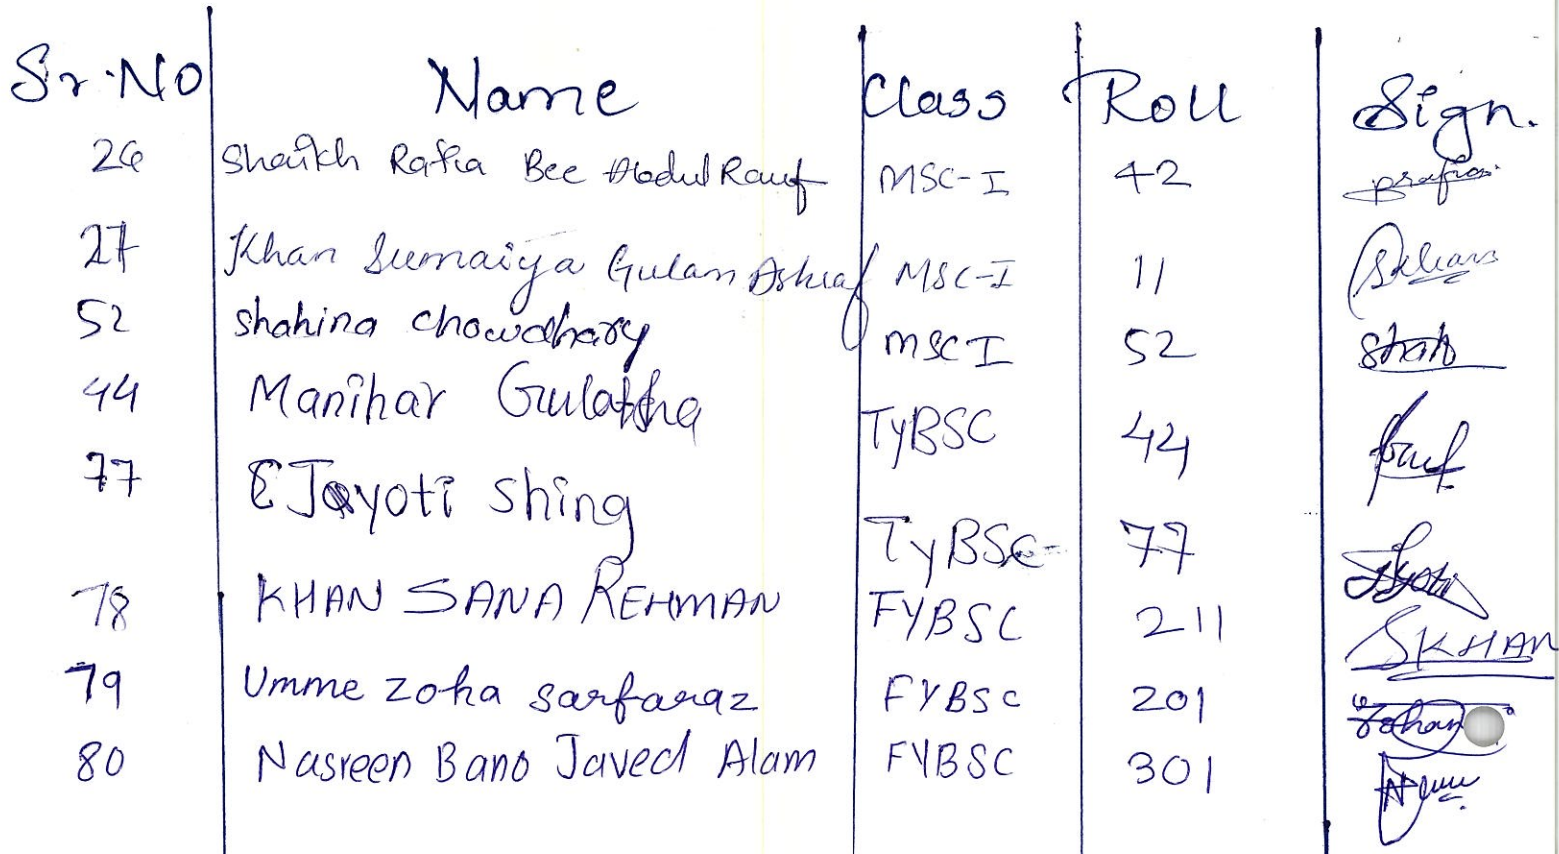 Sr.No Name Class Roll Sign.
26 Shaikh Rafia Bee Abdul Rauf MSC-I 42
27 Khan Sumaiya Gulam Ashraf MSC-I 11
52 Shahina Chowdhary MSC I 52
44 Manihar TyBSC 44
77 Jayoti Shing TyBSC 77
78 KHAN SANA REHMAN FYBSC 211 SKHAN
79 Umme Zoha Sarfaraz FYBSC 201
80 Nasreen Bano Javed Alam FYBSC 301